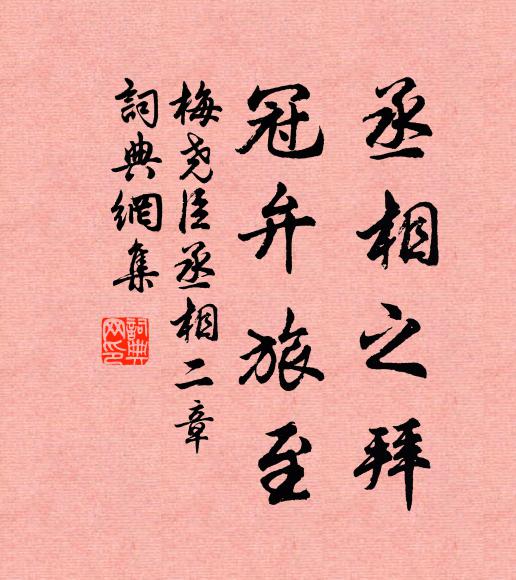 丞相之拜
冠弁旅至
梅尧臣丞相二章
詞典網集
詞典网印